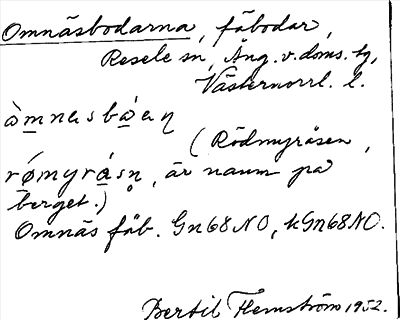 Omnäsbodarna, fäbodar,
Resele sn, Ång. v. doms. tg,
Västernorrl. l.
òmnasbáan
(Rödmyråsen,
rǿmyrásn, är namn på
berget.)
Omnäs fäb. Gn68NO, kGn68NO.
Bertil Flemström 1952.